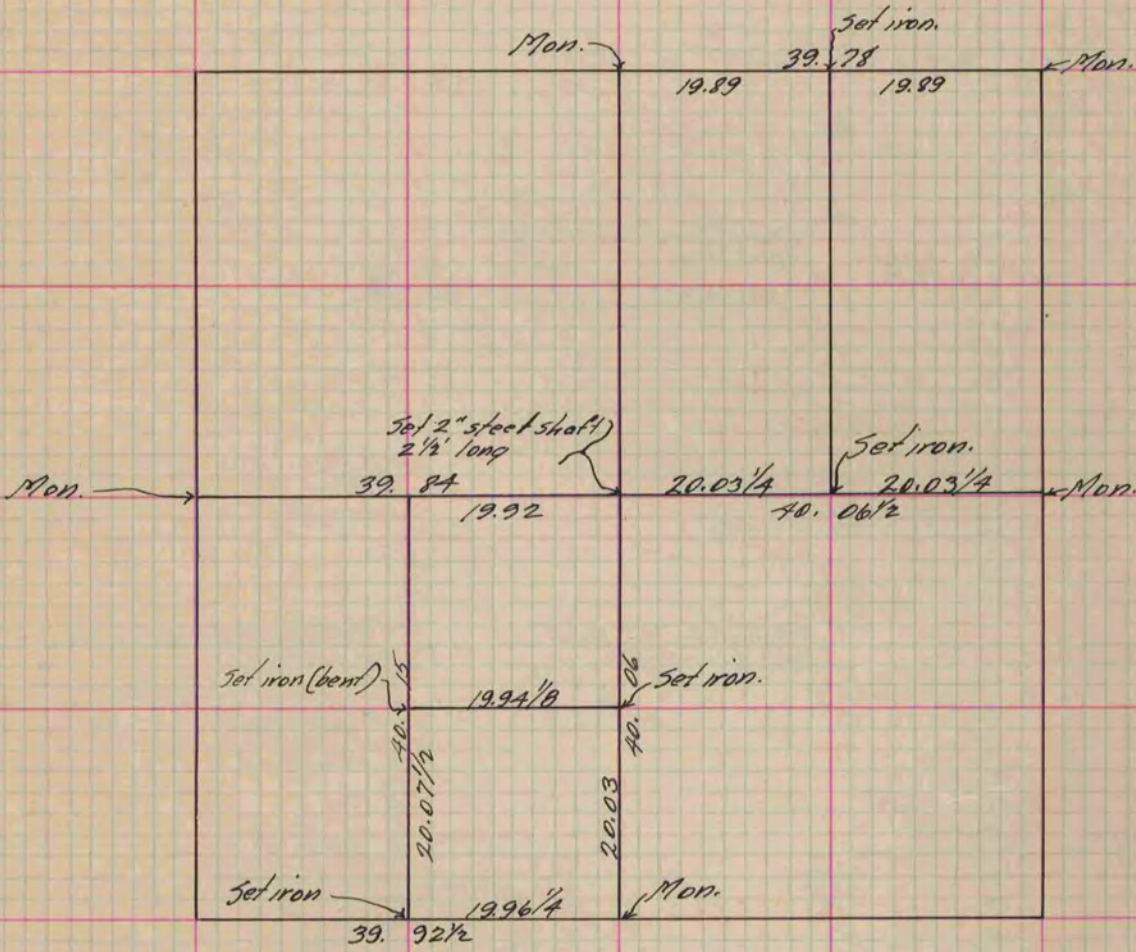 Set iron.
Mon.
39. 78
Mon.
19.89
19.89
Set 2" steel shaft
2 1/2' long
Set iron.
Mon.
39. 84
20.03 1/4
20.03 1/4
Mon.
19.92
40. 06 1/2
Set iron (bent)
40. 15
19.94 1/8
40. 06
Set iron.
20.07 1/2
20.03
Set iron
19.96 1/4
Mon.
39. 92 1/2